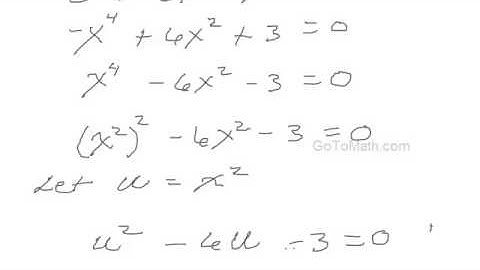 -x⁴ + 6x² + 3 = 0
x⁴ - 6x² - 3 = 0
(x²)² - 6x² - 3 = 0
GoToMath.com
Let u = x²
u² - 6u - 3 = 0